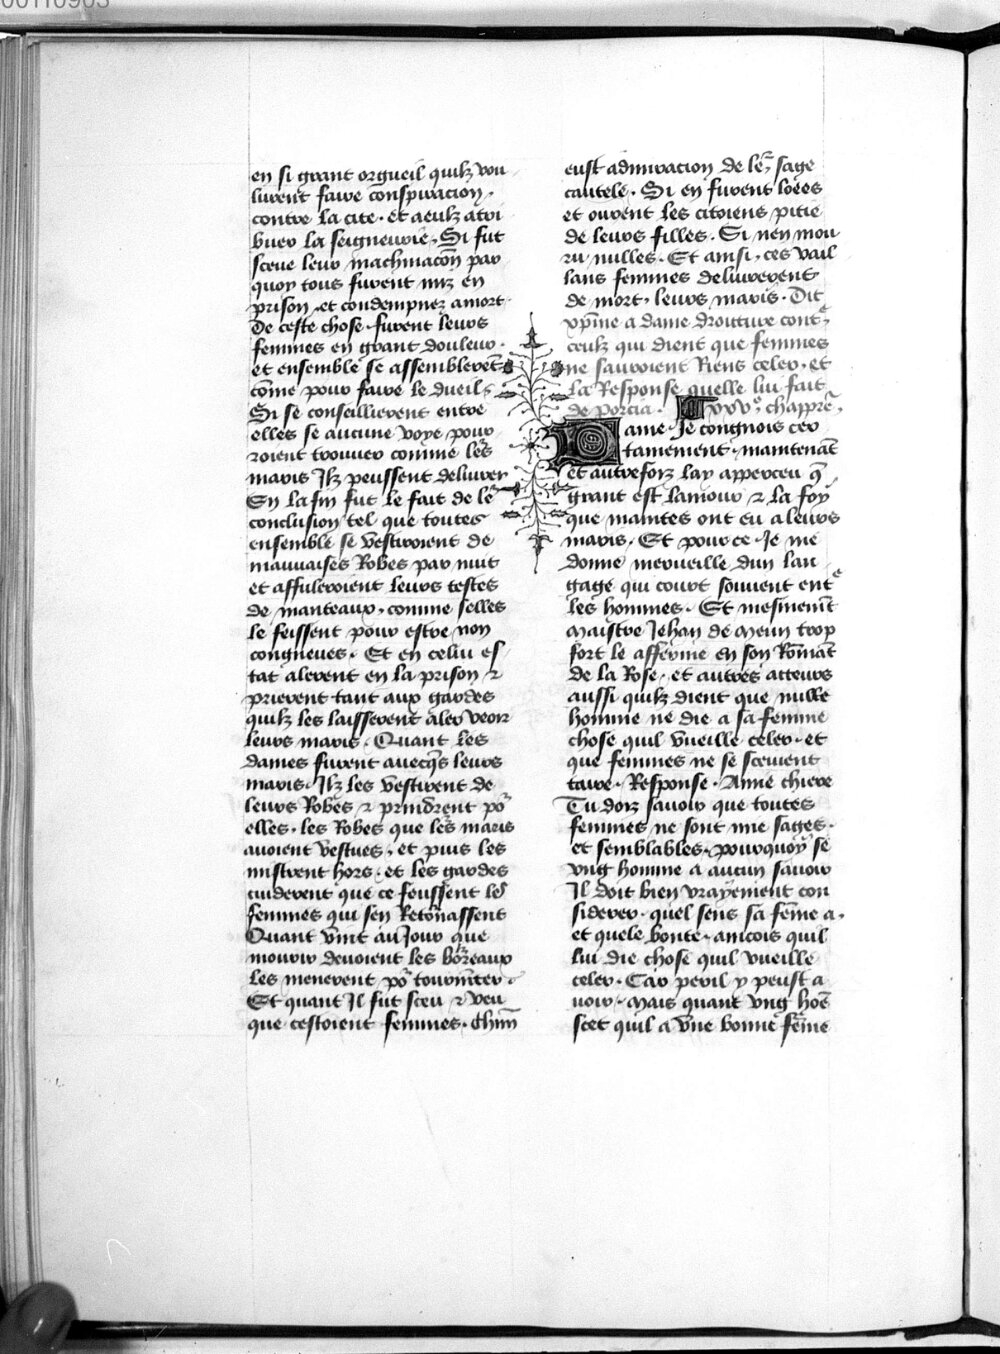 en si grant orgueil quilz vou
lurent faire conspiracion
contre la cite · et aeulz atri
buer la seigneurie · Si fut
sceue leur machinacōn par
quoy tous furent mis en
prison et condempnez amort
De ceste chose furent leurs
femmes en grant douleur ·
et ensemble se assemblerēt
cōme pour faire le dueil
Si se conseillierent entre
elles se aucune voye pour
roient trouuer comme les
maris Ilz peussent deliurer
En la fin fut le fait de le
conclusion tel que toutes
ensemble se vestiroient de
mauuaises Robes par nuit
et affuleroient leurs testes
de manteaux, comme selles
le feissent pour estre non
congneues · Et en celui es
tat alerent en la prison et
prierent tant aux gardes
quilz les laisserent aler veoir
leurs maris · Quant les
dames furent auecqs leurs
maris · Ilz les vestirent de
leurs Robes et prindrent pr̄
elles · les Robes que les maris
auoient vestues, et puis les
mistrent hors · et les gardes
cuiderent que ce feussent les
femmes qui sen Retōnassent
Quant vint au Jour que
mourir deuoient les bourreaux
les menerent pr̄ tourmēter
Et quant Il fut sceu et veu
que cestoient femmes · Chūn
eust admiracion de le sage
cautele · Si en furent loees
et ourent les citoiens pitie
de leurs filles · Si nen mou
ru nulles · Et ainsi, ces vail
lans femmes deliurerent
de mort, leurs maris · Dit
xpīne a dame droitture cont
ceulz qui dient que femmes
ne sauroient Riens celer · et
La Response quelle lui fait
de porcia · xxv · chappr̄e
Dame · Je congnois cer
tainement · maintenāt
et autrefoiz lay apperceu q̄
grant est lamour et la foy
que maintes ont eu a leurs
maris · Et pour ce · Je me
donne merueille dun lan
gage qui court souuent entre
les hommes · Et mesmemēt
Maistre Jehan de Meun trop
fort le afferme en son Romāt
de la Rose · et autres acteurs
aussi quilz dient que nulle
homme ne die a sa femme
chose quil vueille celer · et
que femmes ne se sceuent
taire · Response · Amie chiere
Tu doiz sauoir que toutes
femmes ne sont mie sages ·
et semblables · pourquoy se
vng homme a aucun sauoir
Il doit bien vrayement con
siderer · quel sens sa fēme a ·
et quele bonte · aincois quil
lui die chose quil vueille
celer · Car peril y peust a
uoir · Mais quant vng hōe
scet quil a vne bonne fēme